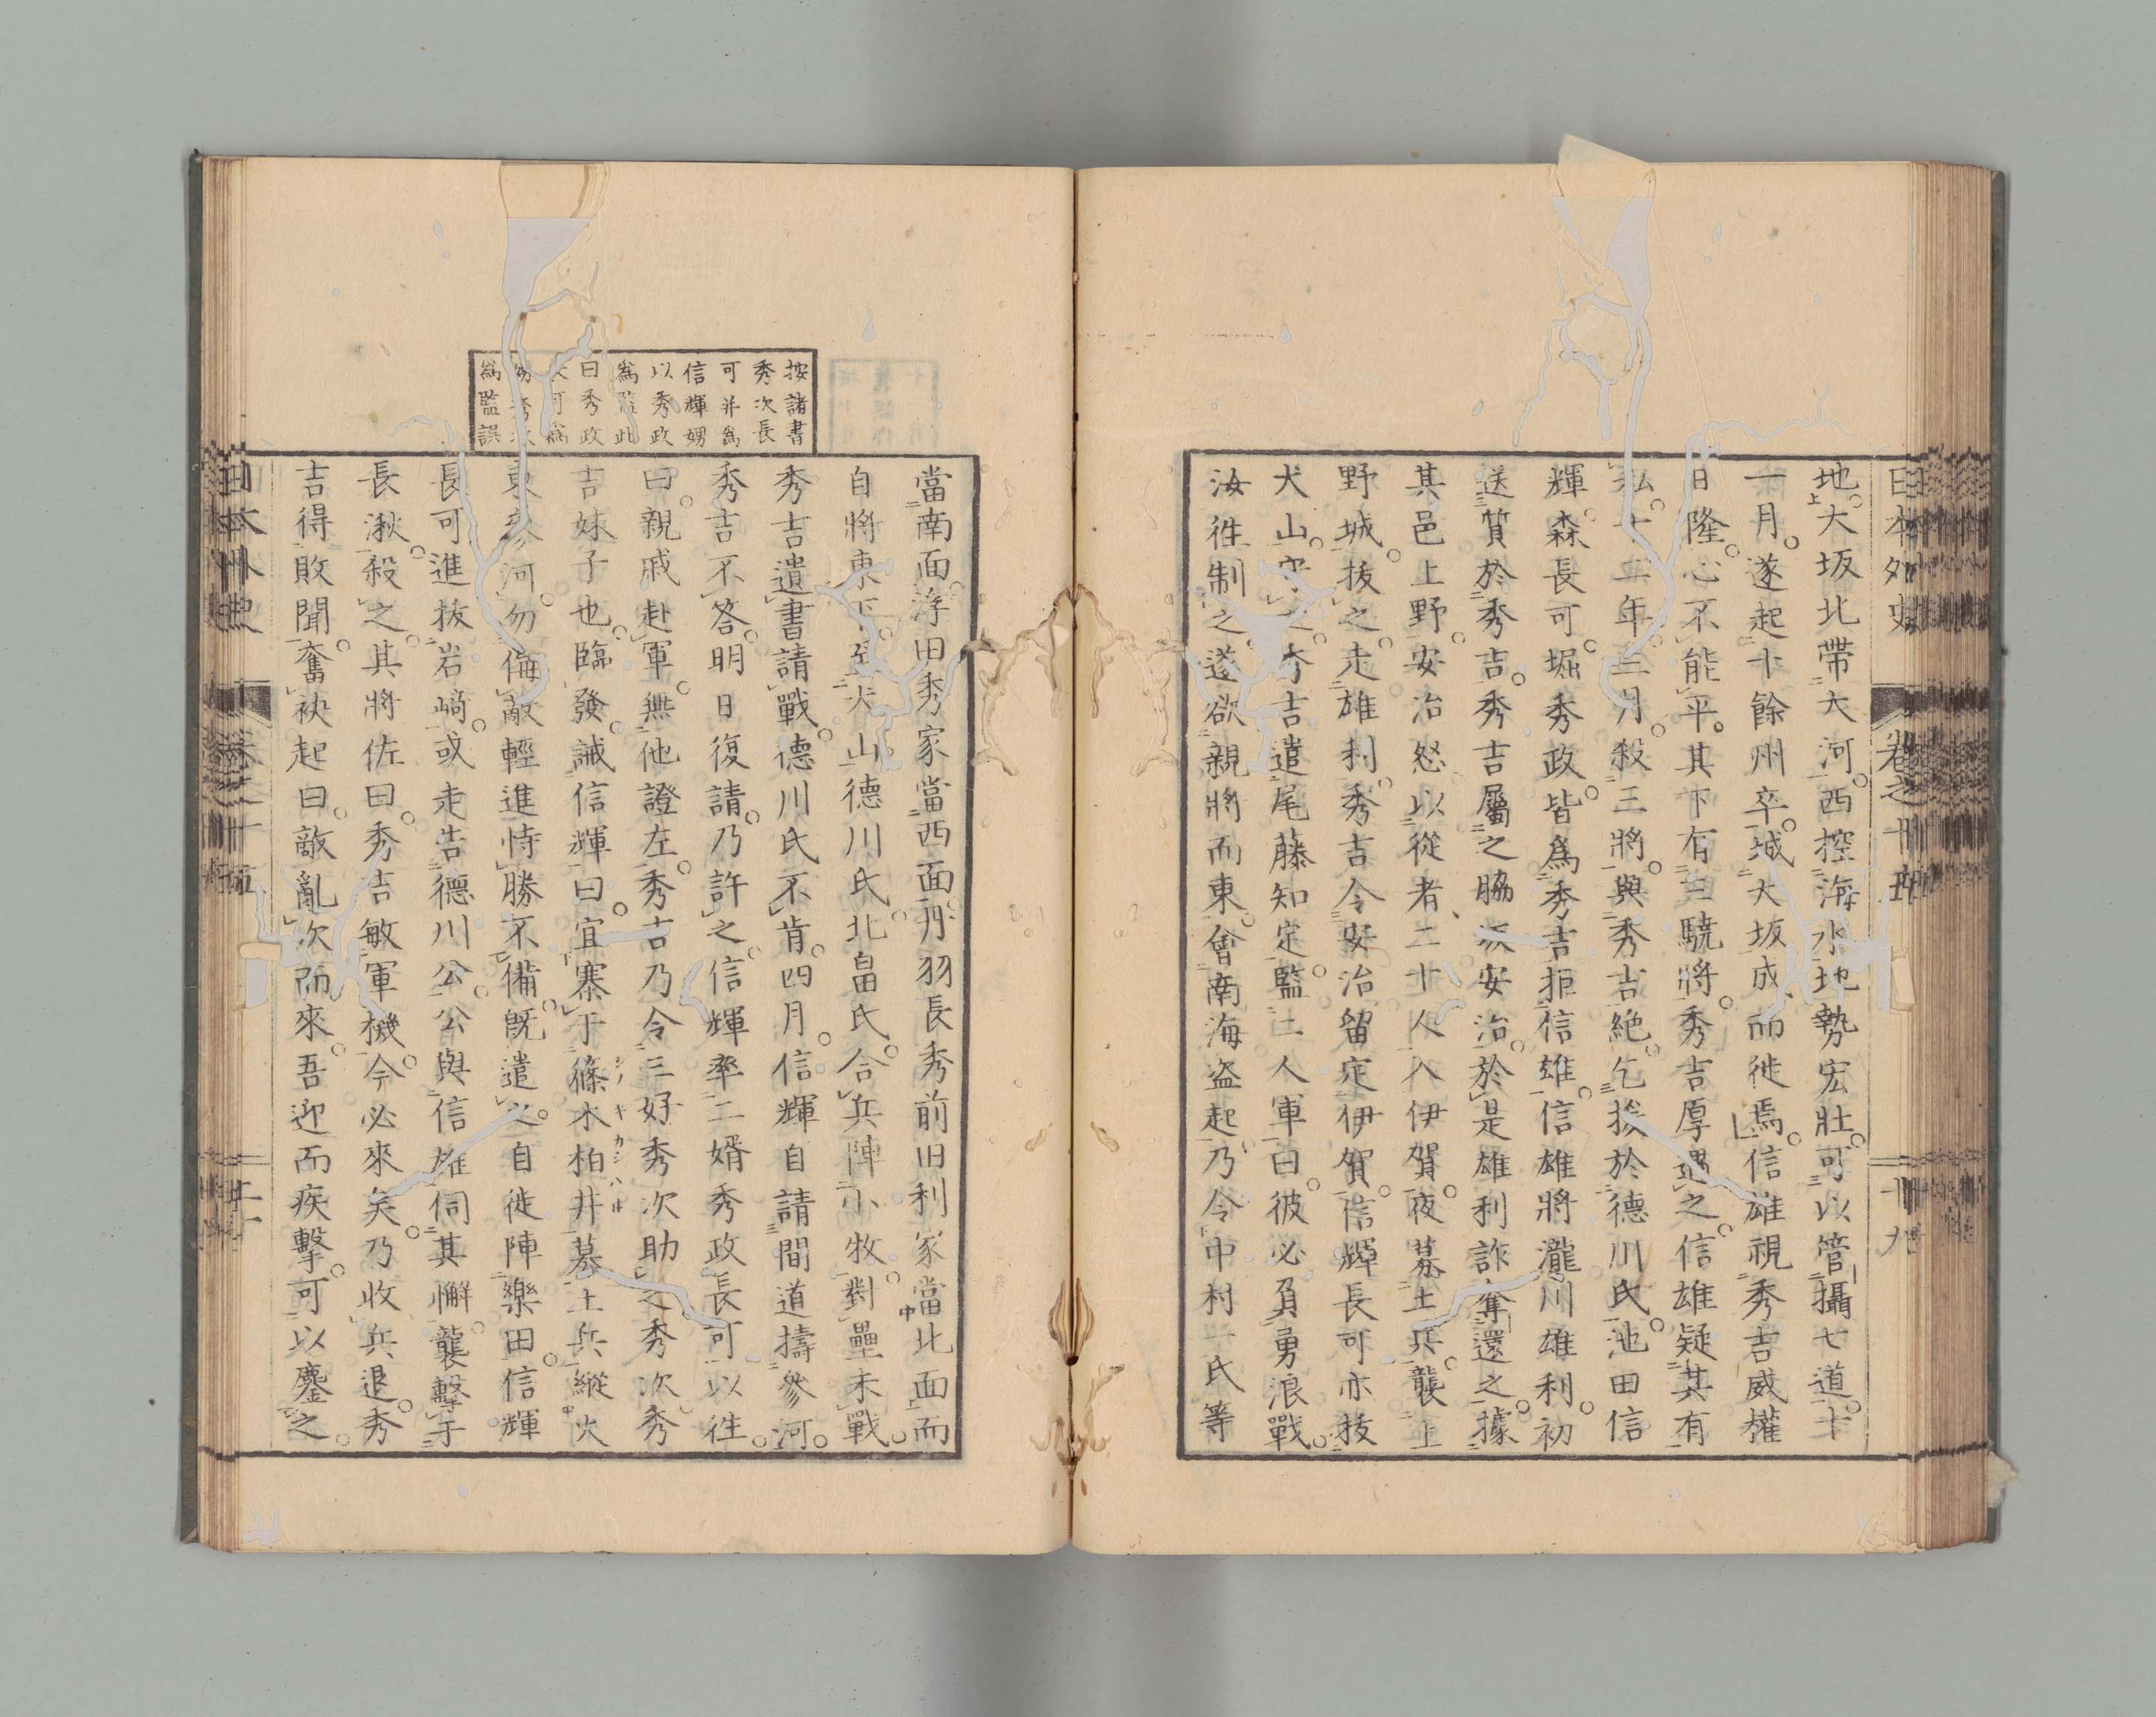 日本外史 卷之十五 十九
地大坂北帶大河西控海水地勢宏壯可以管攝七道十
一月遂起十餘州卒城大坂成而徙焉信雄視秀吉威權
日隆心不能平其下有三驍將秀吉厚遇之信雄疑其有
私十二年三月殺三將與秀吉絶乞援於德川氏池田信
輝森長可堀秀政皆爲秀吉拒信雄信雄將瀧川雄利初
送質於秀吉秀吉屬之脇坂安治於是雄利詐奪還之據
其邑上野安治怒以從者二十人入伊賀夜募土兵襲上
野城拔之走雄利秀吉令安治留定伊賀信輝長可亦拔
犬山守之秀吉遣尾藤知定監二人軍曰彼必負勇浪戰
汝往制之遂欲親將而東會南海盜起乃令中村一氏等
當南面浮田秀家當西面丹羽長秀前田利家當北面而
自將東下至犬山德川氏北畠氏合兵陣小牧對壘未戰
秀吉遺書請戰德川氏不肯四月信輝自請間道擣參河
秀吉不答明日復請乃許之信輝率二婿秀政長可以往
曰親戚赴軍無他證左秀吉乃令三好秀次助之秀次秀
吉妹子也臨發誡信輝曰宜寨于篠木柏井募土兵縱火
東參河勿侮敵輕進恃勝不備既遣之自徙陣樂田信輝
長可進拔岩﨑或走告德川公公與信雄伺其懈襲擊于
長湫殺之其將佐曰秀吉敏軍機今必來矣乃收兵退秀
吉得敗聞奮袂起曰敵亂次而來吾迎而疾擊可以鏖之
按諸書
秀次長
可并爲
信輝甥
以秀政
爲監此
曰秀政
可爲
甥秀次
爲監誤
日本外史 卷之十五 二十